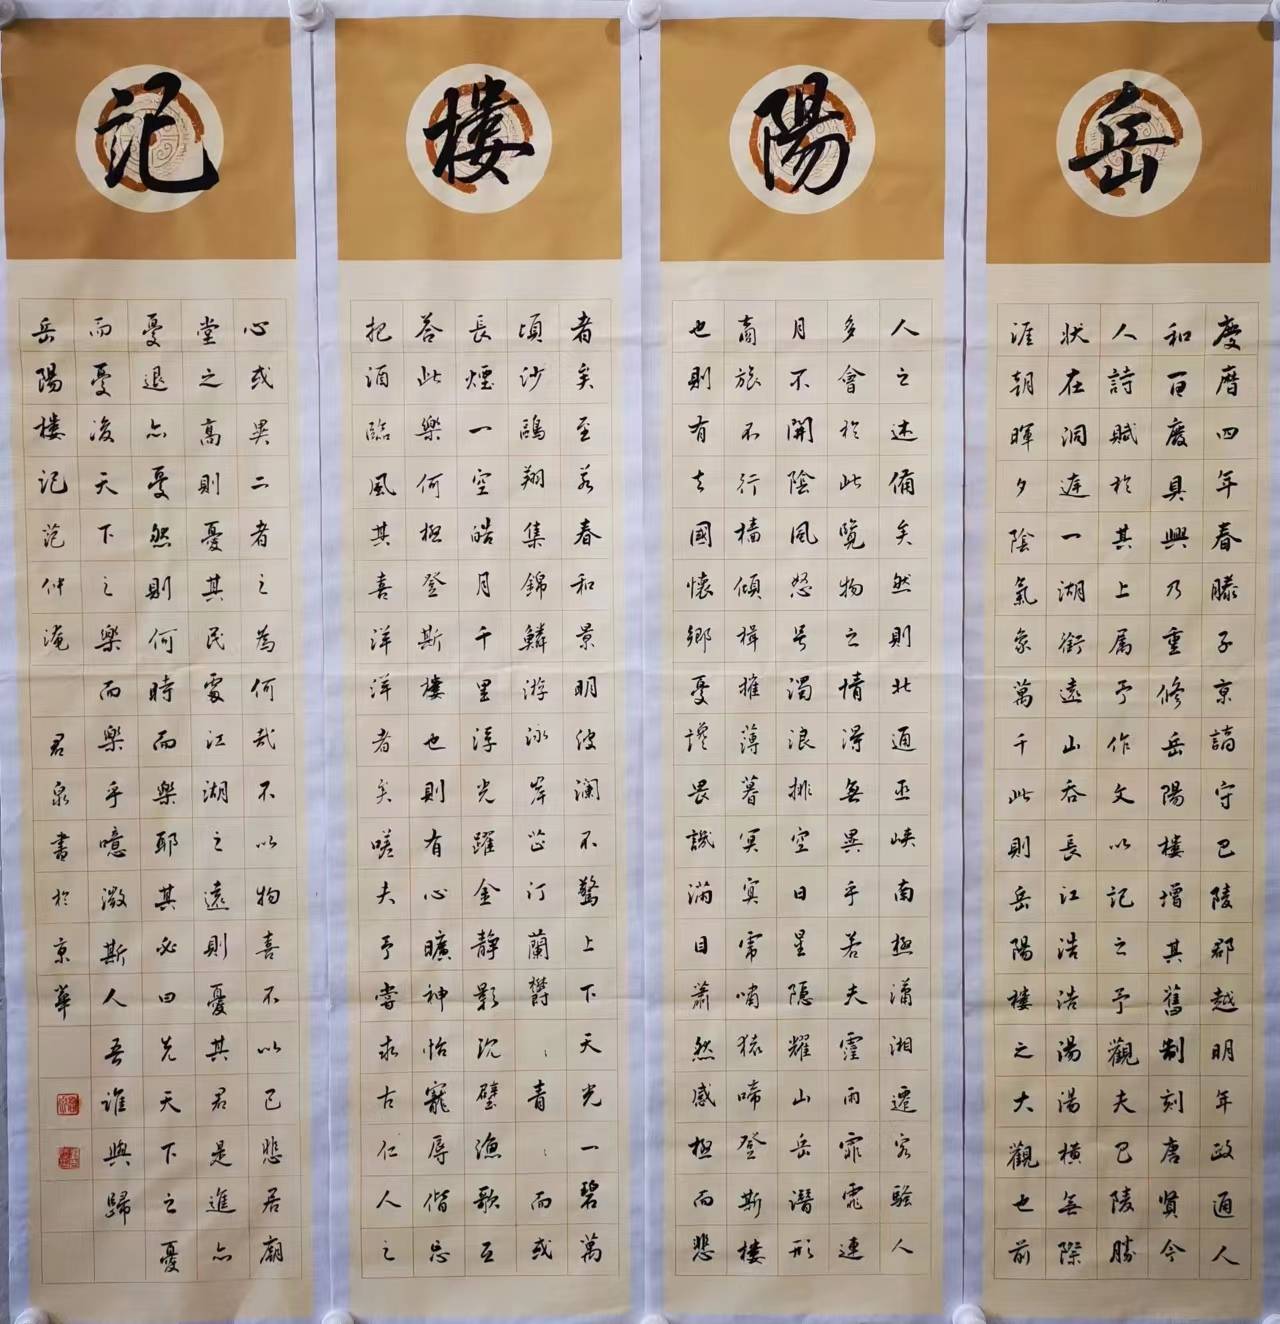 岳
慶曆四年春滕子京謫守巴陵郡越明年政通人
和百廢具興乃重修岳陽樓增其舊制刻唐賢今
人詩賦於其上属予作文以記之予觀夫巴陵勝
狀在洞庭一湖銜遠山吞長江浩浩湯湯橫無際
涯朝暉夕陰氣象萬千此則岳陽樓之大觀也前
陽
人之述備矣然則北通巫峽南極瀟湘遷客騷人
多會於此覽物之情得無異乎若夫霪雨霏霏連
月不開陰風怒号濁浪排空日星隱耀山岳潛形
商旅不行檣傾楫摧薄暮冥冥虎嘯猿啼登斯樓
也則有去國懷鄉憂讒畏譏滿目蕭然感極而悲
樓
者矣至若春和景明波瀾不驚上下天光一碧萬
頃沙鷗翔集錦鱗游泳岸芷汀蘭鬱〻青〻而或
長煙一空皓月千里浮光躍金靜影沉璧漁歌互
答此樂何極登斯樓也則有心曠神怡寵辱偕忘
把酒臨風其喜洋洋者矣嗟夫予嘗求古仁人之
記
心或異二者之為何哉不以物喜不以己悲居廟
堂之高則憂其民處江湖之遠則憂其君是進亦
憂退亦憂然則何時而樂耶其必曰先天下之憂
而憂後天下之樂而樂乎噫微斯人吾誰與歸
岳陽樓記范仲淹 君泉書於京華